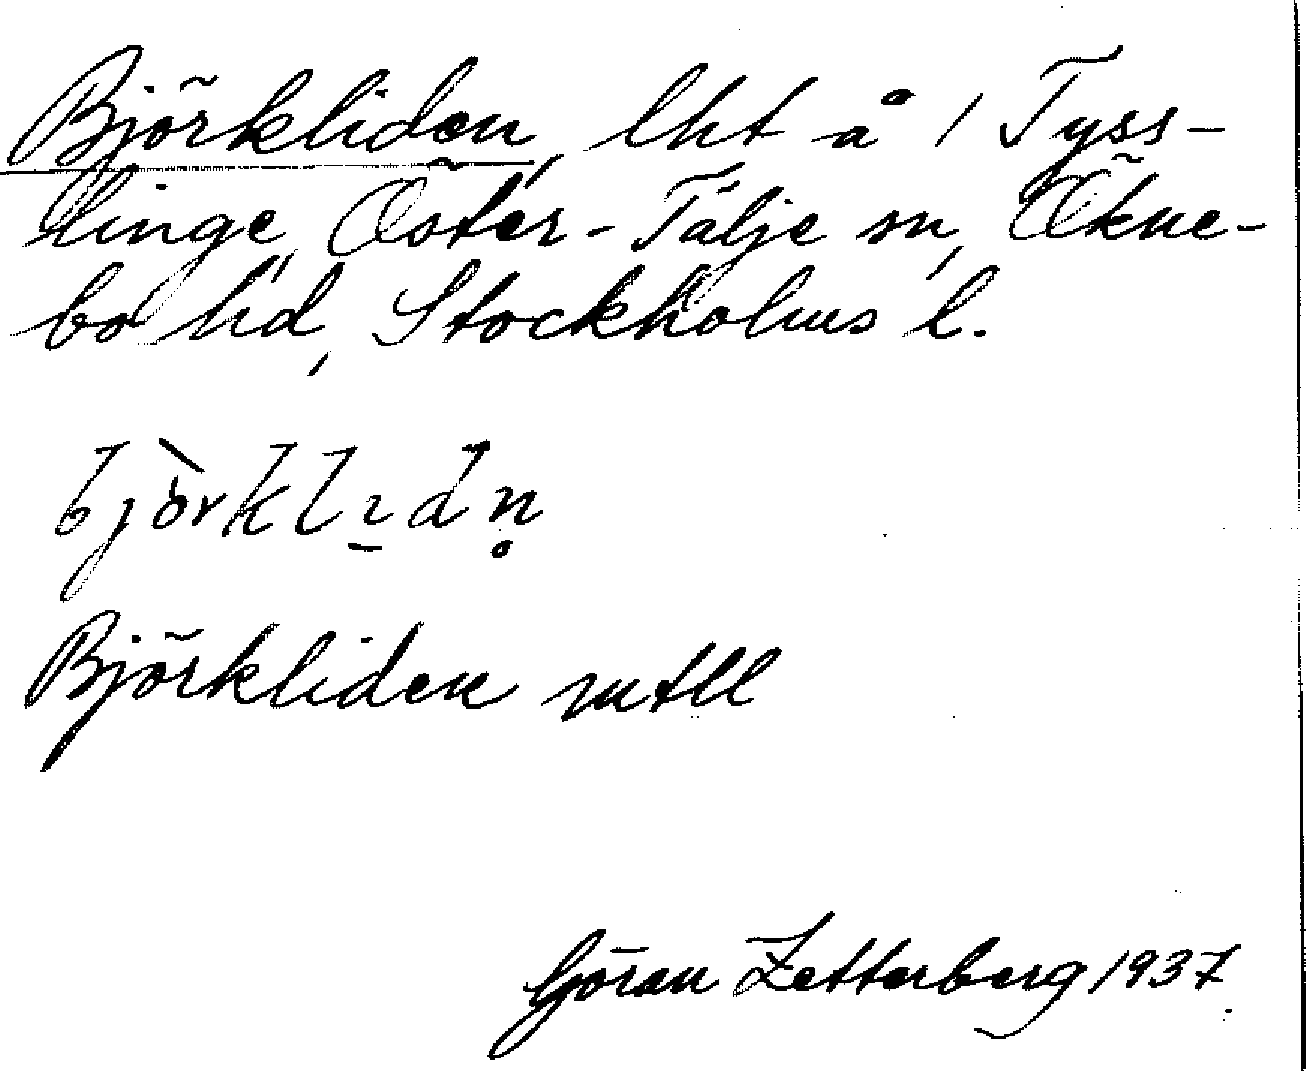 Björkliden, lht å 1 Tyss-
linge, Öster-Tälje sn, Ökne-
bo hd, Stockholms l.
bjò̈rklı̠dn̥
Björkliden mtll
Göran Zetterberg 1937